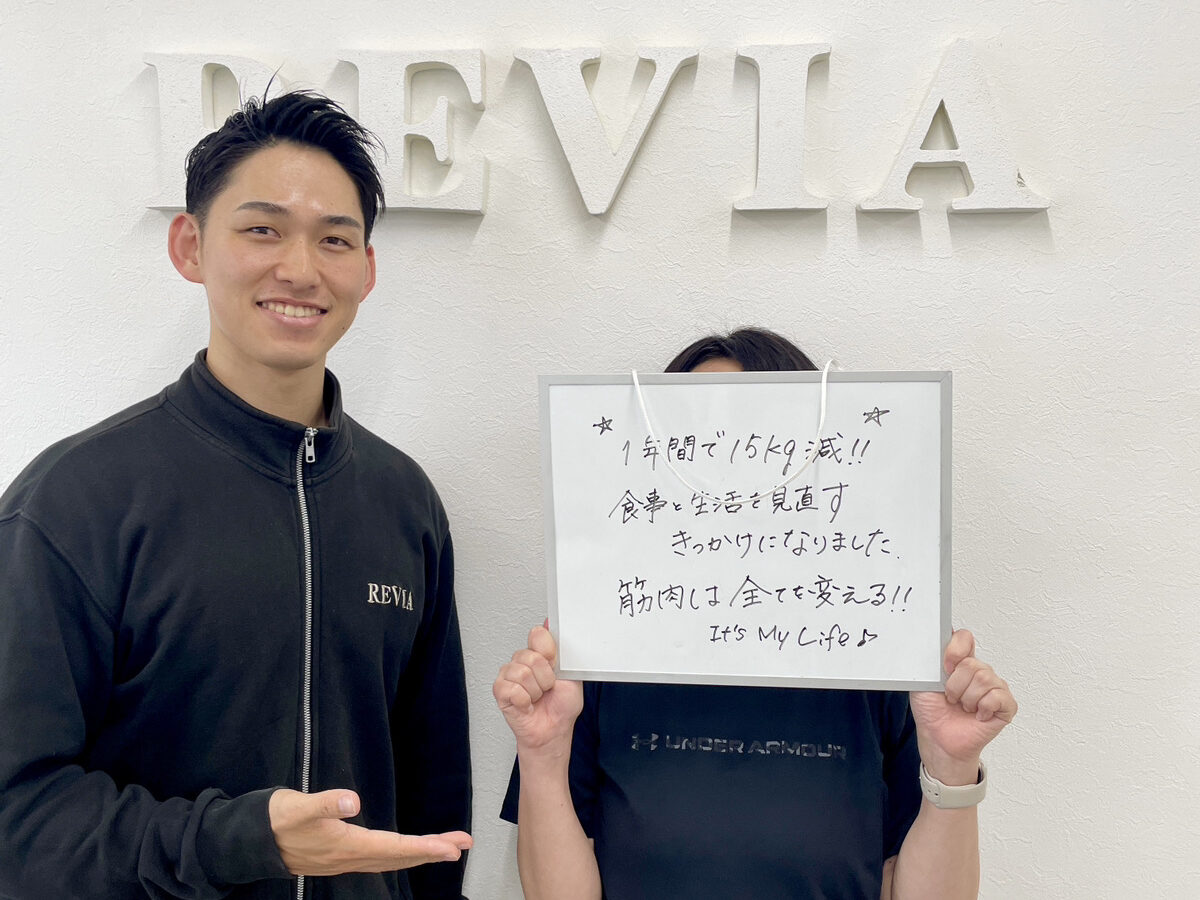 REVIA
REVIA
☆ 1年間で15kg減!! ☆
食事と生活を見直す
きっかけになりました.
筋肉は全てを変える!!
It's My Life♪
UNDER ARMOUR